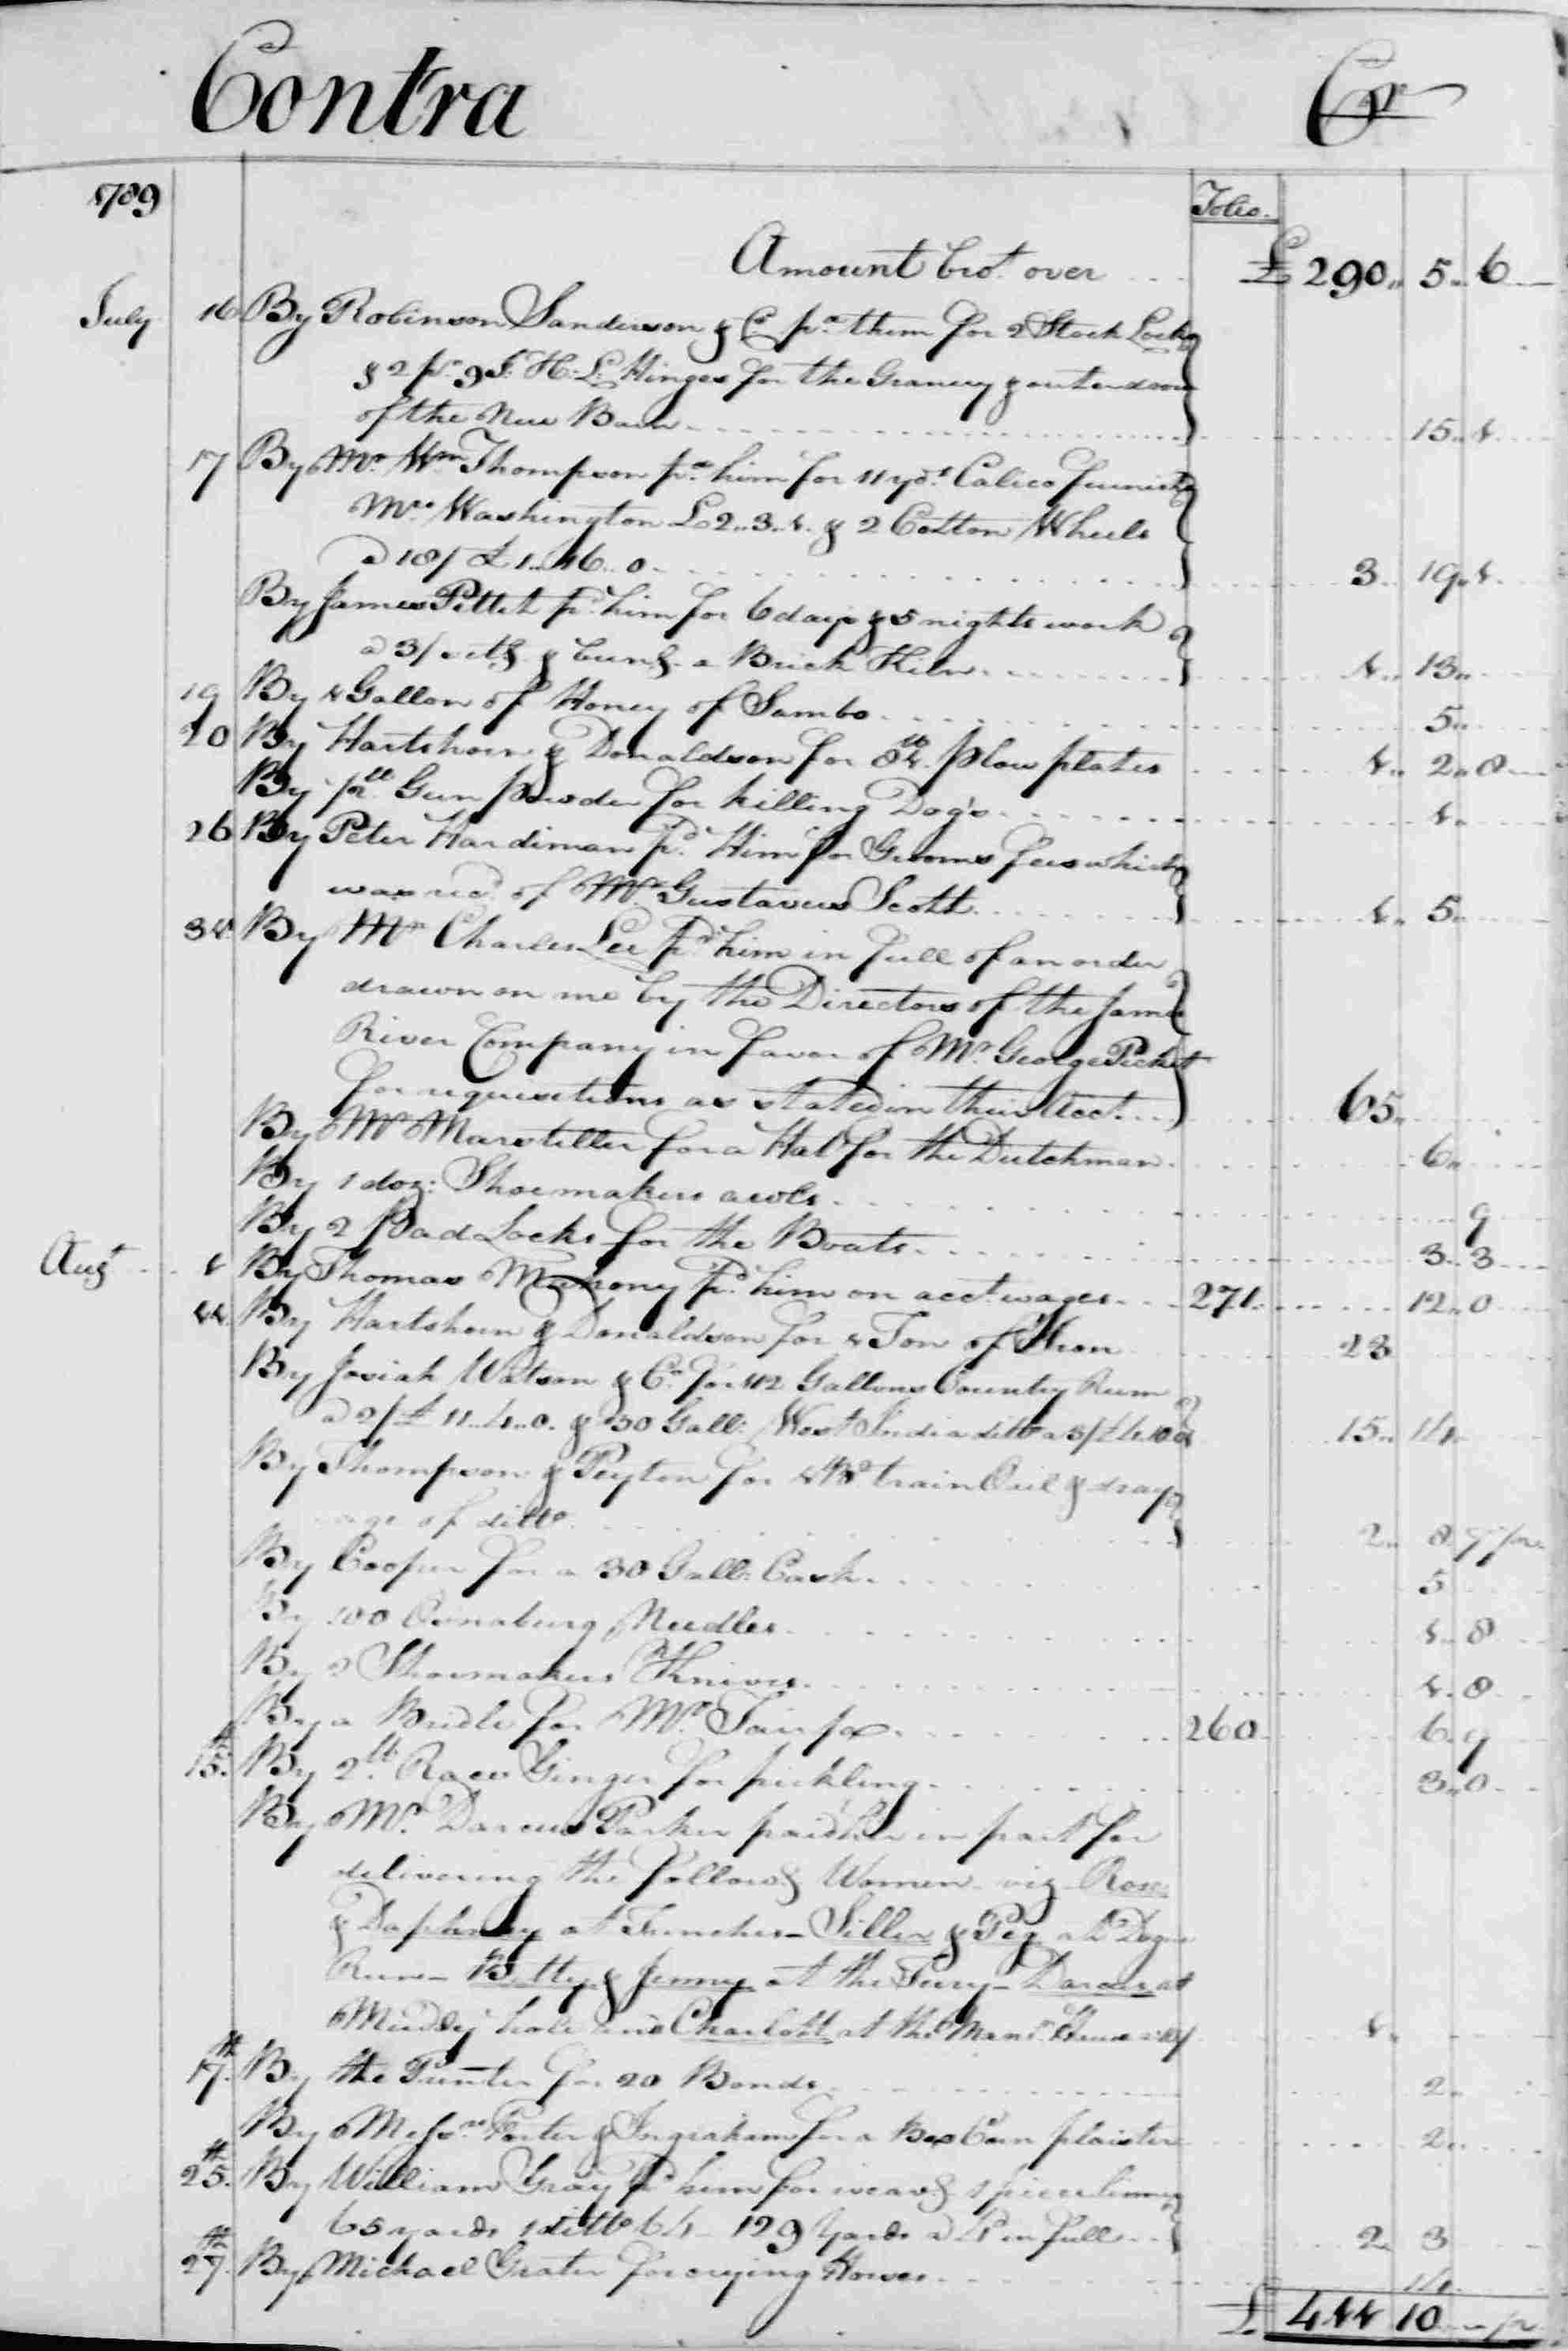 Contra Cr
1789 Folio.
Amount brot. over £ 290.. 5.. 6
July 16 By Robinson Sanderson & Co. pd. them for 2 Stock Locks
& 2 pr. 9 I. H. L. Hinges for the Granery & outer doors
of the New Barn 15.. 4
17 By Mr. Wm. Thompson pd. him for 11 yds. Calico furnishg
Mrs. Washington £2..3..4. & 2 Cotton Wheels
a 18/ £1..16..0 3.. 19.. 4
By James Pettit pd. him for 6 days & 5 nights work
a 3/ setg. & burng. a Brick Kiln 4.. 13..
19 By 4 Gallon of Honey of Sambo 5..
20 By Hartshorn & Donaldson for plow plates 4.. 2.. 8
By 1lb. Gun powder for killing Dogs 4..
26 By Peter Hardiman pd. Him for Grooms fees which
was recd. of Mr. Gustavus Scott 4.. 5..
By Mr. Charles Lee pd. him in full of an order
drawn on me by the Directors of the James
River Company in favor of Mr. George Picket
for requisetions as stated in their Acct. 65..
By Mr. Marsteller for a Hat for the Dutchman 6..
By 1 doz: Shoemakers awls 9
By 2 Pad Locks for the Boats 3.. 3
Augt. 4 By Thomas Mahony pd. him on acct. wages 271 12.. 0
By Hartshorn & Donaldson for 4 Ton of Iron 28
By Josiah Watson & Co. for 112 Gallons Country Rum
a 2/ £ 11..4..0. & 30 Gall: West India ditto a 3/ £4.10.0 15.. 14
By Thompson & Peyton for train Oil & dray
age of ditto 2.. 8
By Cooper for a 30 Gall: Cask 5
By 100 Oznaburg Needles 4.. 8
By Shoemakers Knives 4.. 8
By a Bridle for Mr. Fairfax 260 6.. 9
15th. By 2lb. Race Ginger for pickling 3.. 0
By Mrs. Darcus Parker paid her in part for
delivering the followg Women viz Rose
& Daphney at Frenches - Siller & Peg at Dogue
Run - Betty & Jenny at the Ferry - Darcus at
Muddy hole and Charlott at the Mann. House a 10/ 4..
17th. By the Printer for 20 Bonds 2..
By Messrs. Porter & Ingraham for a Box Corn plaister 2..
25th. By William Gray pd. him for weavg 1 piece linnen
65 yards 1 ditto 64 - 129 Yards a 4d. in full 2.. 3
27th. By Michael Grater for crying Horses 14
£ 444 10